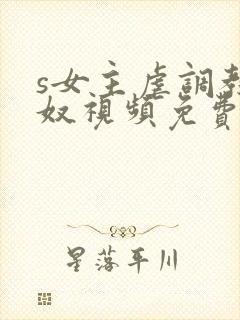 s女王虐調教
奴視頻免費
星落平川